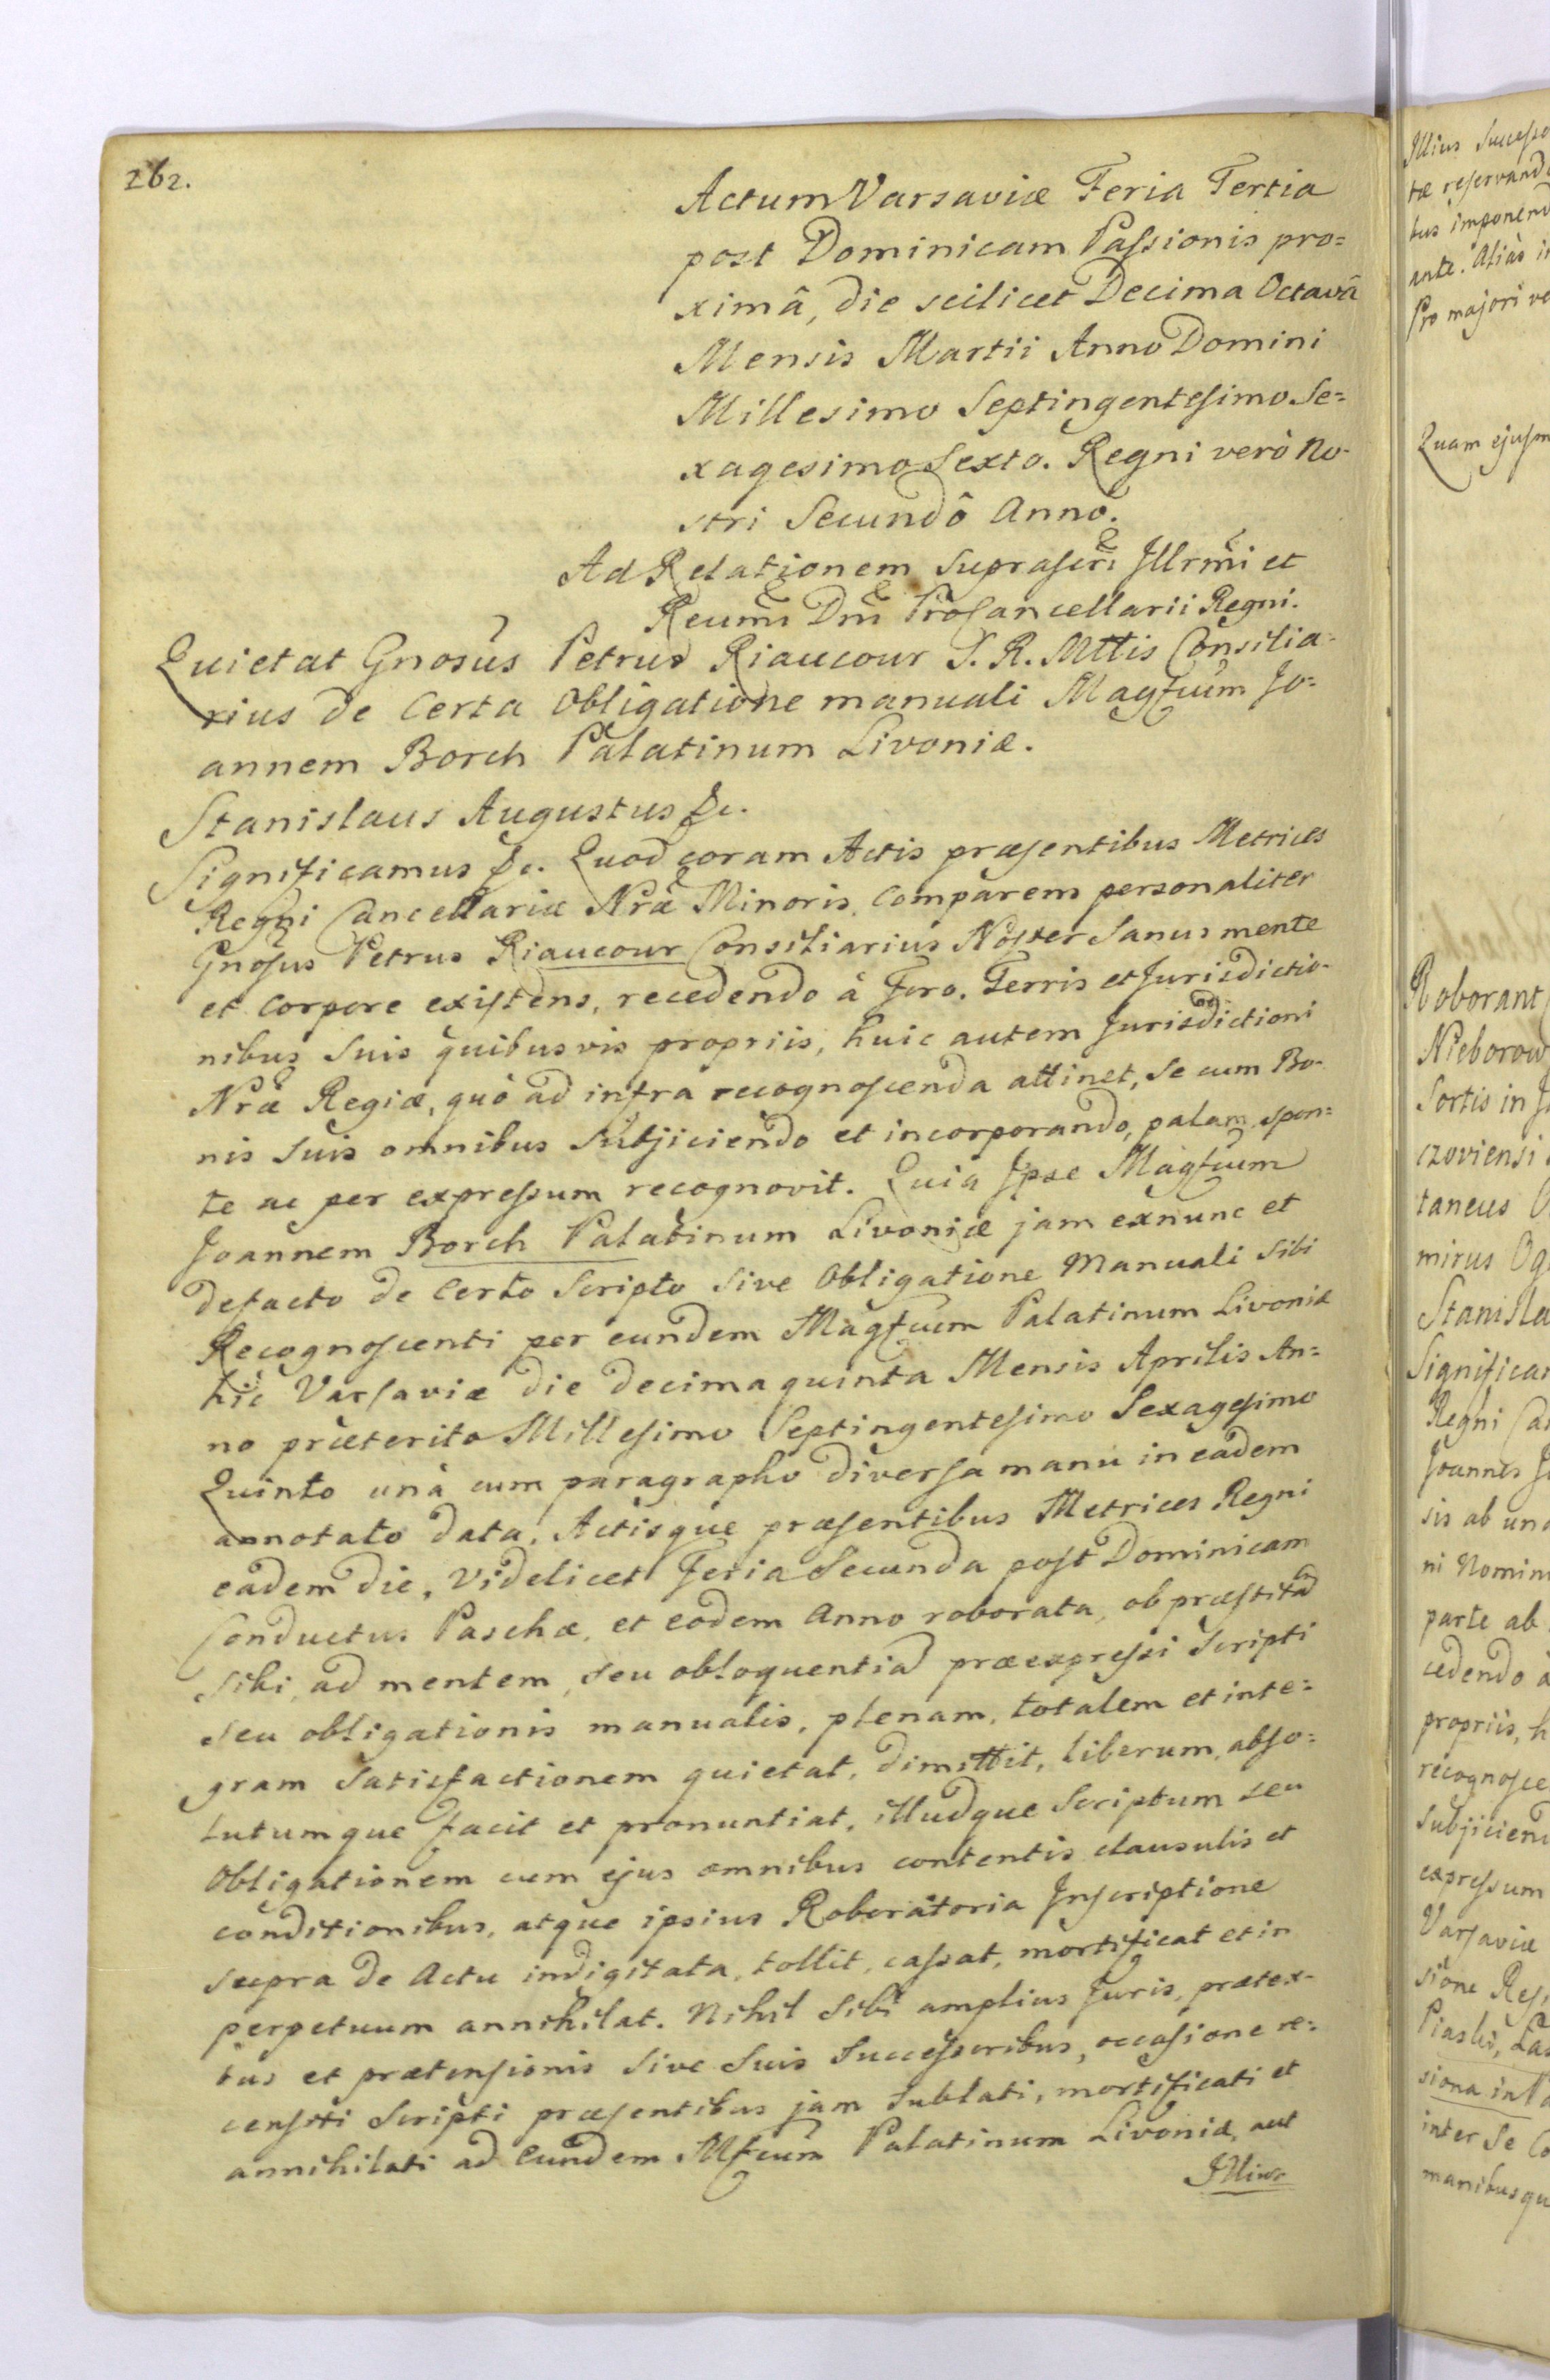 262.
Actum Varsaviæ Feria Tertia
post Dominicam Passionis pro=
ximâ, die scilicet Decima Octavâ
Mensis Martii Anno Domini
Millesimo Septingentesimo Se=
xagesimo Sexto. Regni verò No-
stri Secundô Anno.
Ad Relationem suprascri Illrmi et
Reumi Dni ProCancellarii Regni.
Quietat Gnosus Petrus Riaucour S. R. Mttis Consilia-
rius de Certa Obligatione manuali Magfcum Jo=
annem Borch Palatinum Livoniæ.
Stanislaus Augustus &c.
Significamus &c. Quod coram Actis præsentibus Metrices
Regni Cancellariæ Nræ Minoris, Comparens personaliter
Gnosus Petrus Riaucour Consiliarius Noster Sanus mente
et Corpore existens, recedendo à Foro, Terris et Jurisdictio-
nibus Suis quibusvis propriis, huic autem Jurisdictioni
Nræ Regiæ, quò ad infra recognoscenda attinet, Se cum Bo-
nis Suis omnibus Subjiciendo et incorporando, palam spon=
te ac per expressum recognovit. Quia Ipse Magfcum
Joannem Borch Palatinum Livoniæ jam exnunc et
defacto de Certo Scripto Sive Obligatione Manuali Sibi
Recognoscenti per eundem Magfcum Palatinum Livoniæ
hic Varsaviæ die decima quinta Mensis Aprilis An=
no præterito Millesimo Septingentesimo Sexagesimo
Quinto unà cum paragrapho diversa manu in eadem
annotato data, Actisque præsentibus Metrices Regni
eadem die, Videlicet Feria Secunda post Dominicam
Conductus Paschæ, et eodem Anno roborata, ob præstitam
Sibi, ad mentem, seu obloquentiam præexpressi Scripti
seu obligationis manualis, plenam, totalem et inte=
gram Satisfactionem quietat, dimittit, liberum, abso=
lutumque facit et pronuntiat, illudque Scriptum seu
Obligationem cum ejus omnibus contentis clausulis et
conditionibus, atque ipsius Roboratoria Inscriptione
supra de Actu indigitata, tollit, cassat, mortificat et in
perpetuum annihilat. Nihil Sibi amplius Juris, prætex-
tus et prætensionis Sive Suis Successoribus, occasione re=
censiti Scripti præsentibus jam Sublati, mortificati et
annihilati ad Eundem Mfcum Palatinum Livoniæ, aut
Illius
Illius Successo
tæ reservand
tus imponend
ante. Aliàs i
Pro majori ve
Quam ejusm
Roborant
Nieborow
Sortis in J
czoviensi
taneus O
mirus Og
Stanisla
Significa
Regni Ca
Joannes J
sis ab una
ni Nomin
parte ab
cedendo à
propriis, h
recognosce
Subjiciend
expressum
Varsaviæ
sione Res
Piaski, La
siona int
inter Se Co
manibusqu